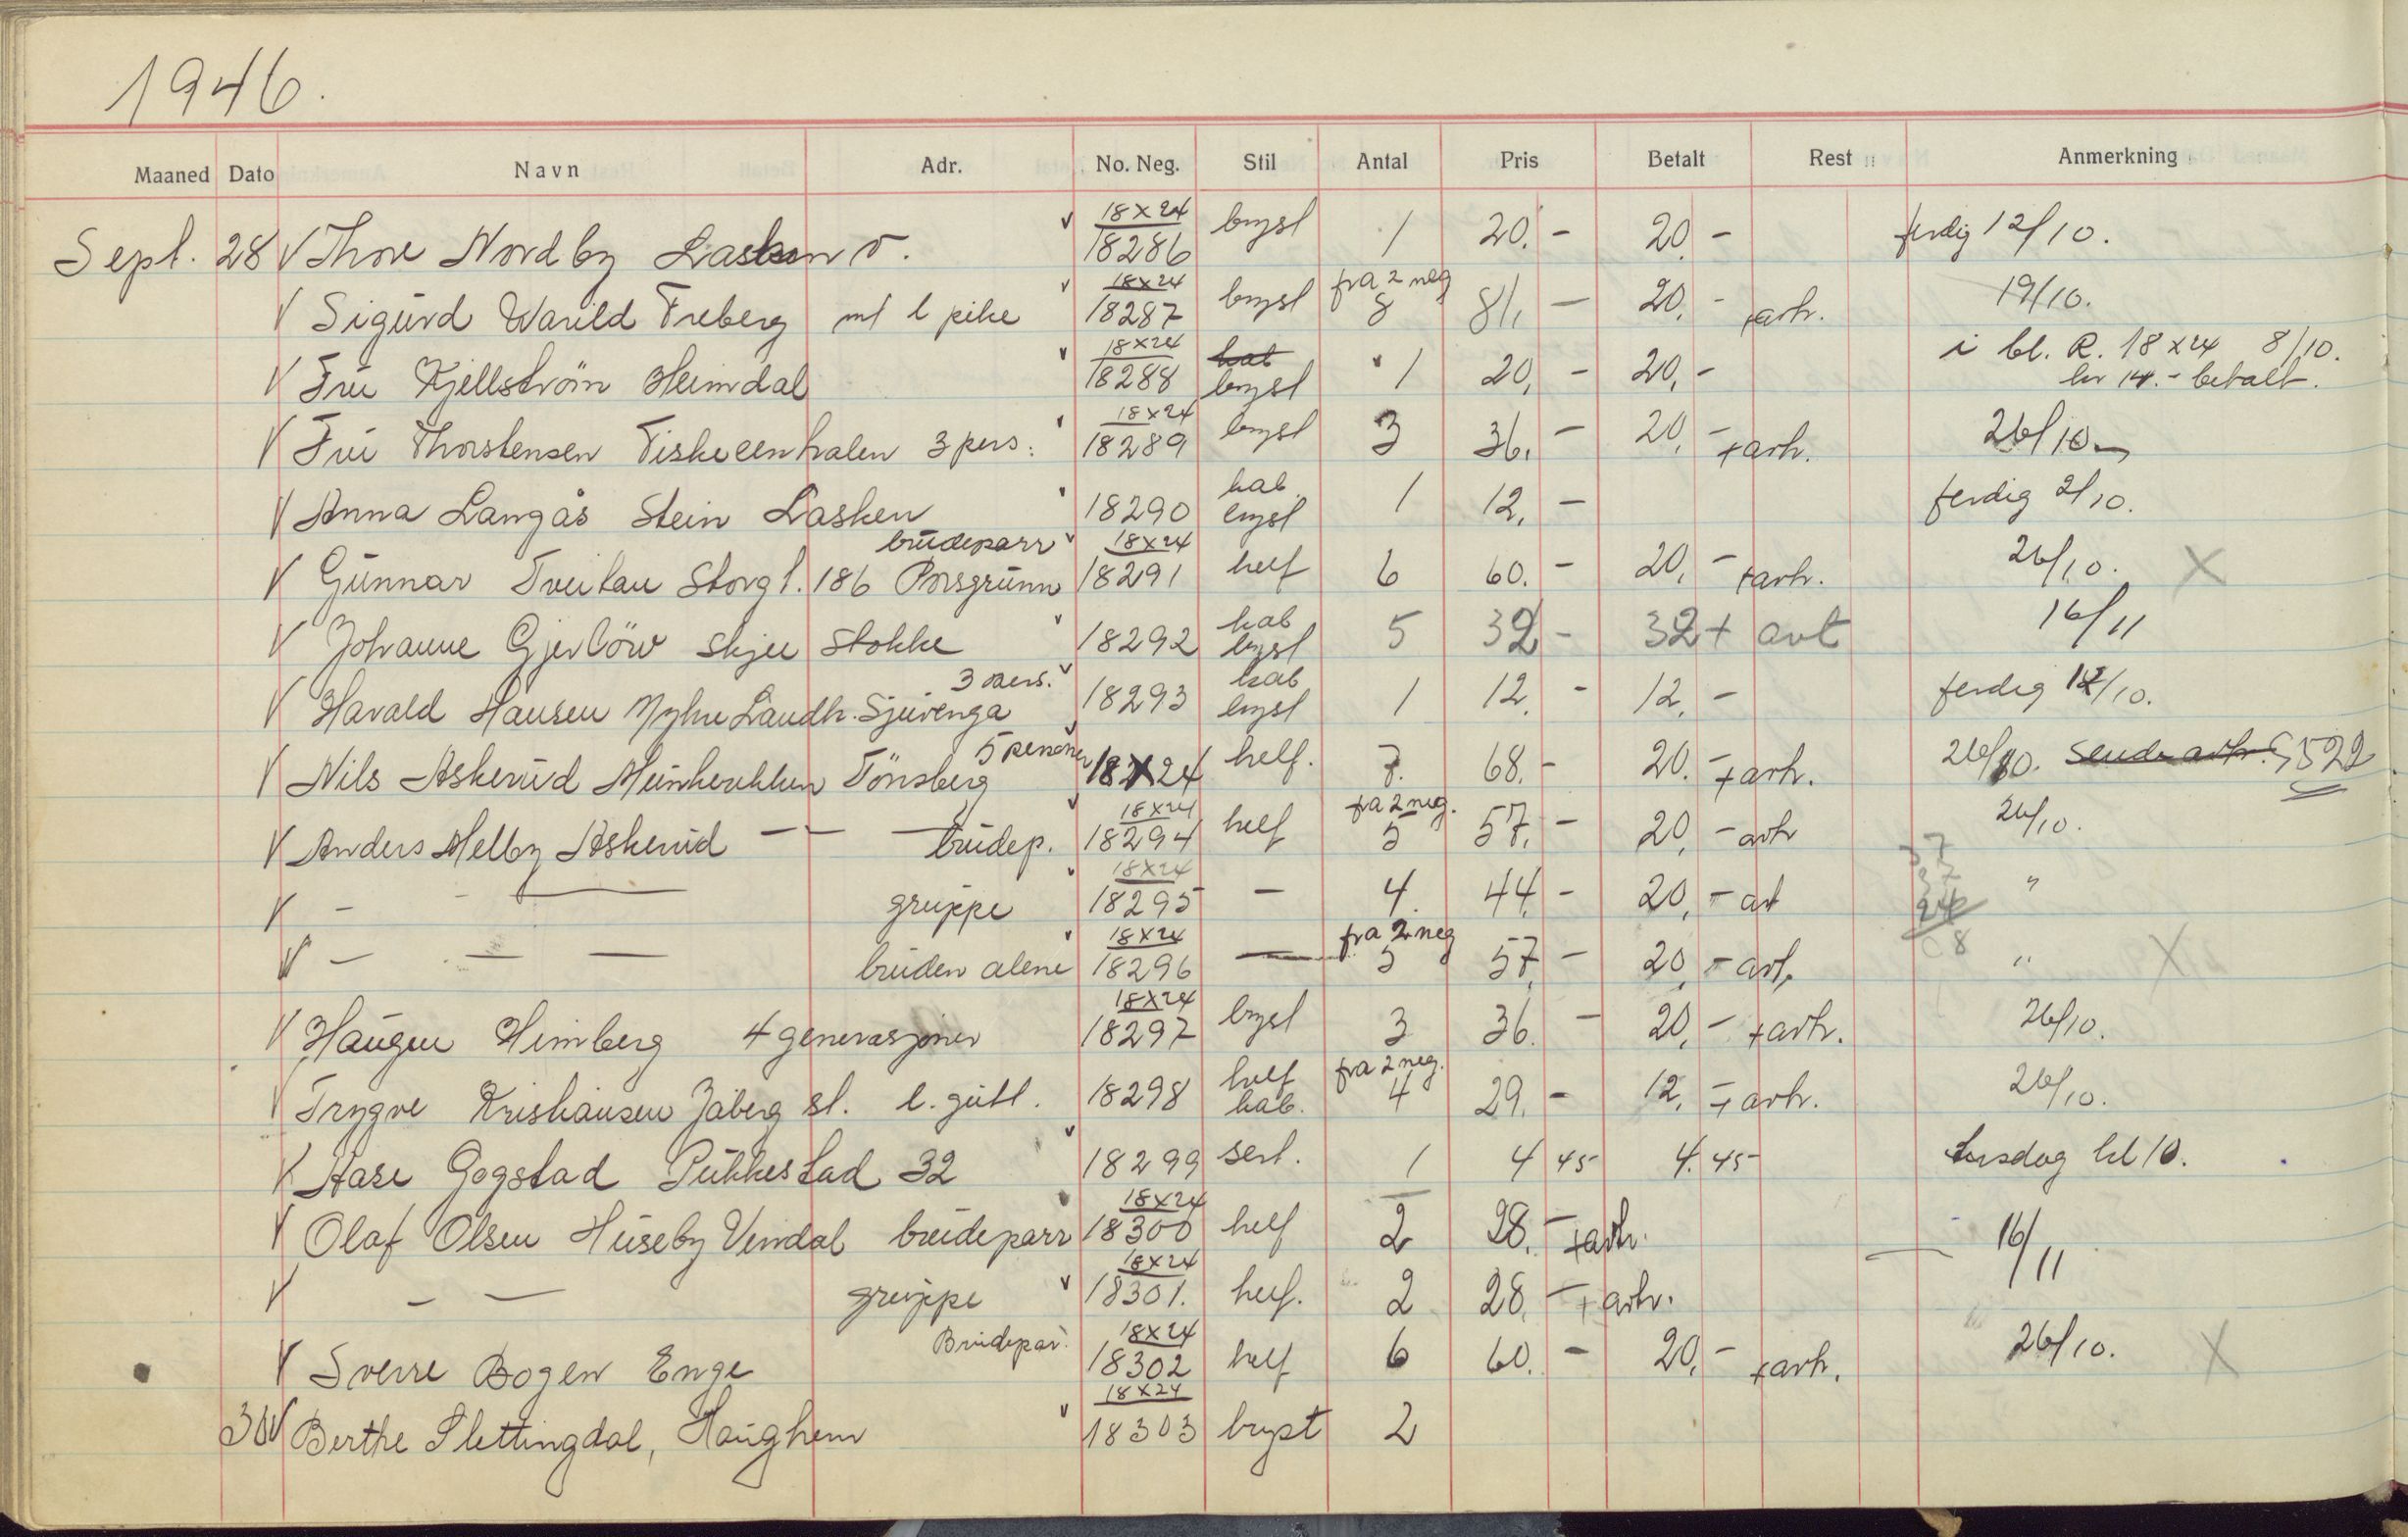 1946.
Maaned Dato Navn Adr. No. Neg. Stil Antal Pris Betalt Rest Anmerkning
18x24
Sept. 28 V Thore Nordby Lasken v. 18286 bryst 1 20.- 20.- ferdig 12/10.
18x24 fra 2 neg
V Sigurd Warild Freberg m/ l pike 18287 bryst 8 81.- 20.- + ark. 19/10.
18x24 kab i bl. R. 18x24 8/10.
V Fru Kjellström Heimdal 18288 bryst 1 20.- 20.- kr 14.- betalt.
18x24
V Fru Thorstensen Fiskecentralen 3 pers. 18289 bryst 3 36.- 20.- + ark. 26/10
kab.
V Anna Langås Stein Lasken 18290 bryst 1 12.- ferdig 2/10.
brudeparr 18x24
V Gunnar Treitau Storgt. 186 Porsgrunn 18291 helf 6 60.- 20.- + ark. 26/10. X
kab
V Johanne Gjerlöw Skjee Stokke 18292 bryst 5 32- 32+ avt 16/11
3 pers. kab
V Harald Hansen Landh. Sjuvenga 18293 bryst 1 12.- 12.- ferdig 12/10.
5 personer
V Nils Askerud Tönsberg 18x24 helf. 7. 68.- 20.- + ark. 26/10. Sende ark. 522
18x24 fra 2 neg.
V Anders Melby Askerud — — — brudep. 18294 helf 5 57.- 20.- ark 26/10.
37
37
24
18x24
V - — gruppe 18295 — 4. 44.- 20.- ark "
98
18x24 fra 2 neg
V — — — bruden alene 18296 — 5 57.- 20.- ark. " X
18x24
V Haugen Himberg 4 generasjoner 18297 bryst 3 36.- 20.- + ark. 26/10.
helf fra 2 neg.
V Trygve Kristiansen Jåberg st. l. gutt. 18298 kab. 4 29.- 12.- + ark. 26/10.
V Aase Gogstad Pukkestad 32 18299 sert. 1 4 45 4. 45 torsdag kl 10.
18x24
V Olaf Olsen Huseby Vendal brudeparr 18300 helf 2 28.- + ark. 16/11
18x24
V - — gruppe 18301. helf. 2 28.- + ark.
Brudepar. 18x24
V Sverre Bogen Enge 18302 helf 6 60.- 20.- + ark. 26/10. X
18x24
30 V Berthe Slettingdal, Haughem 18303 bryst 2